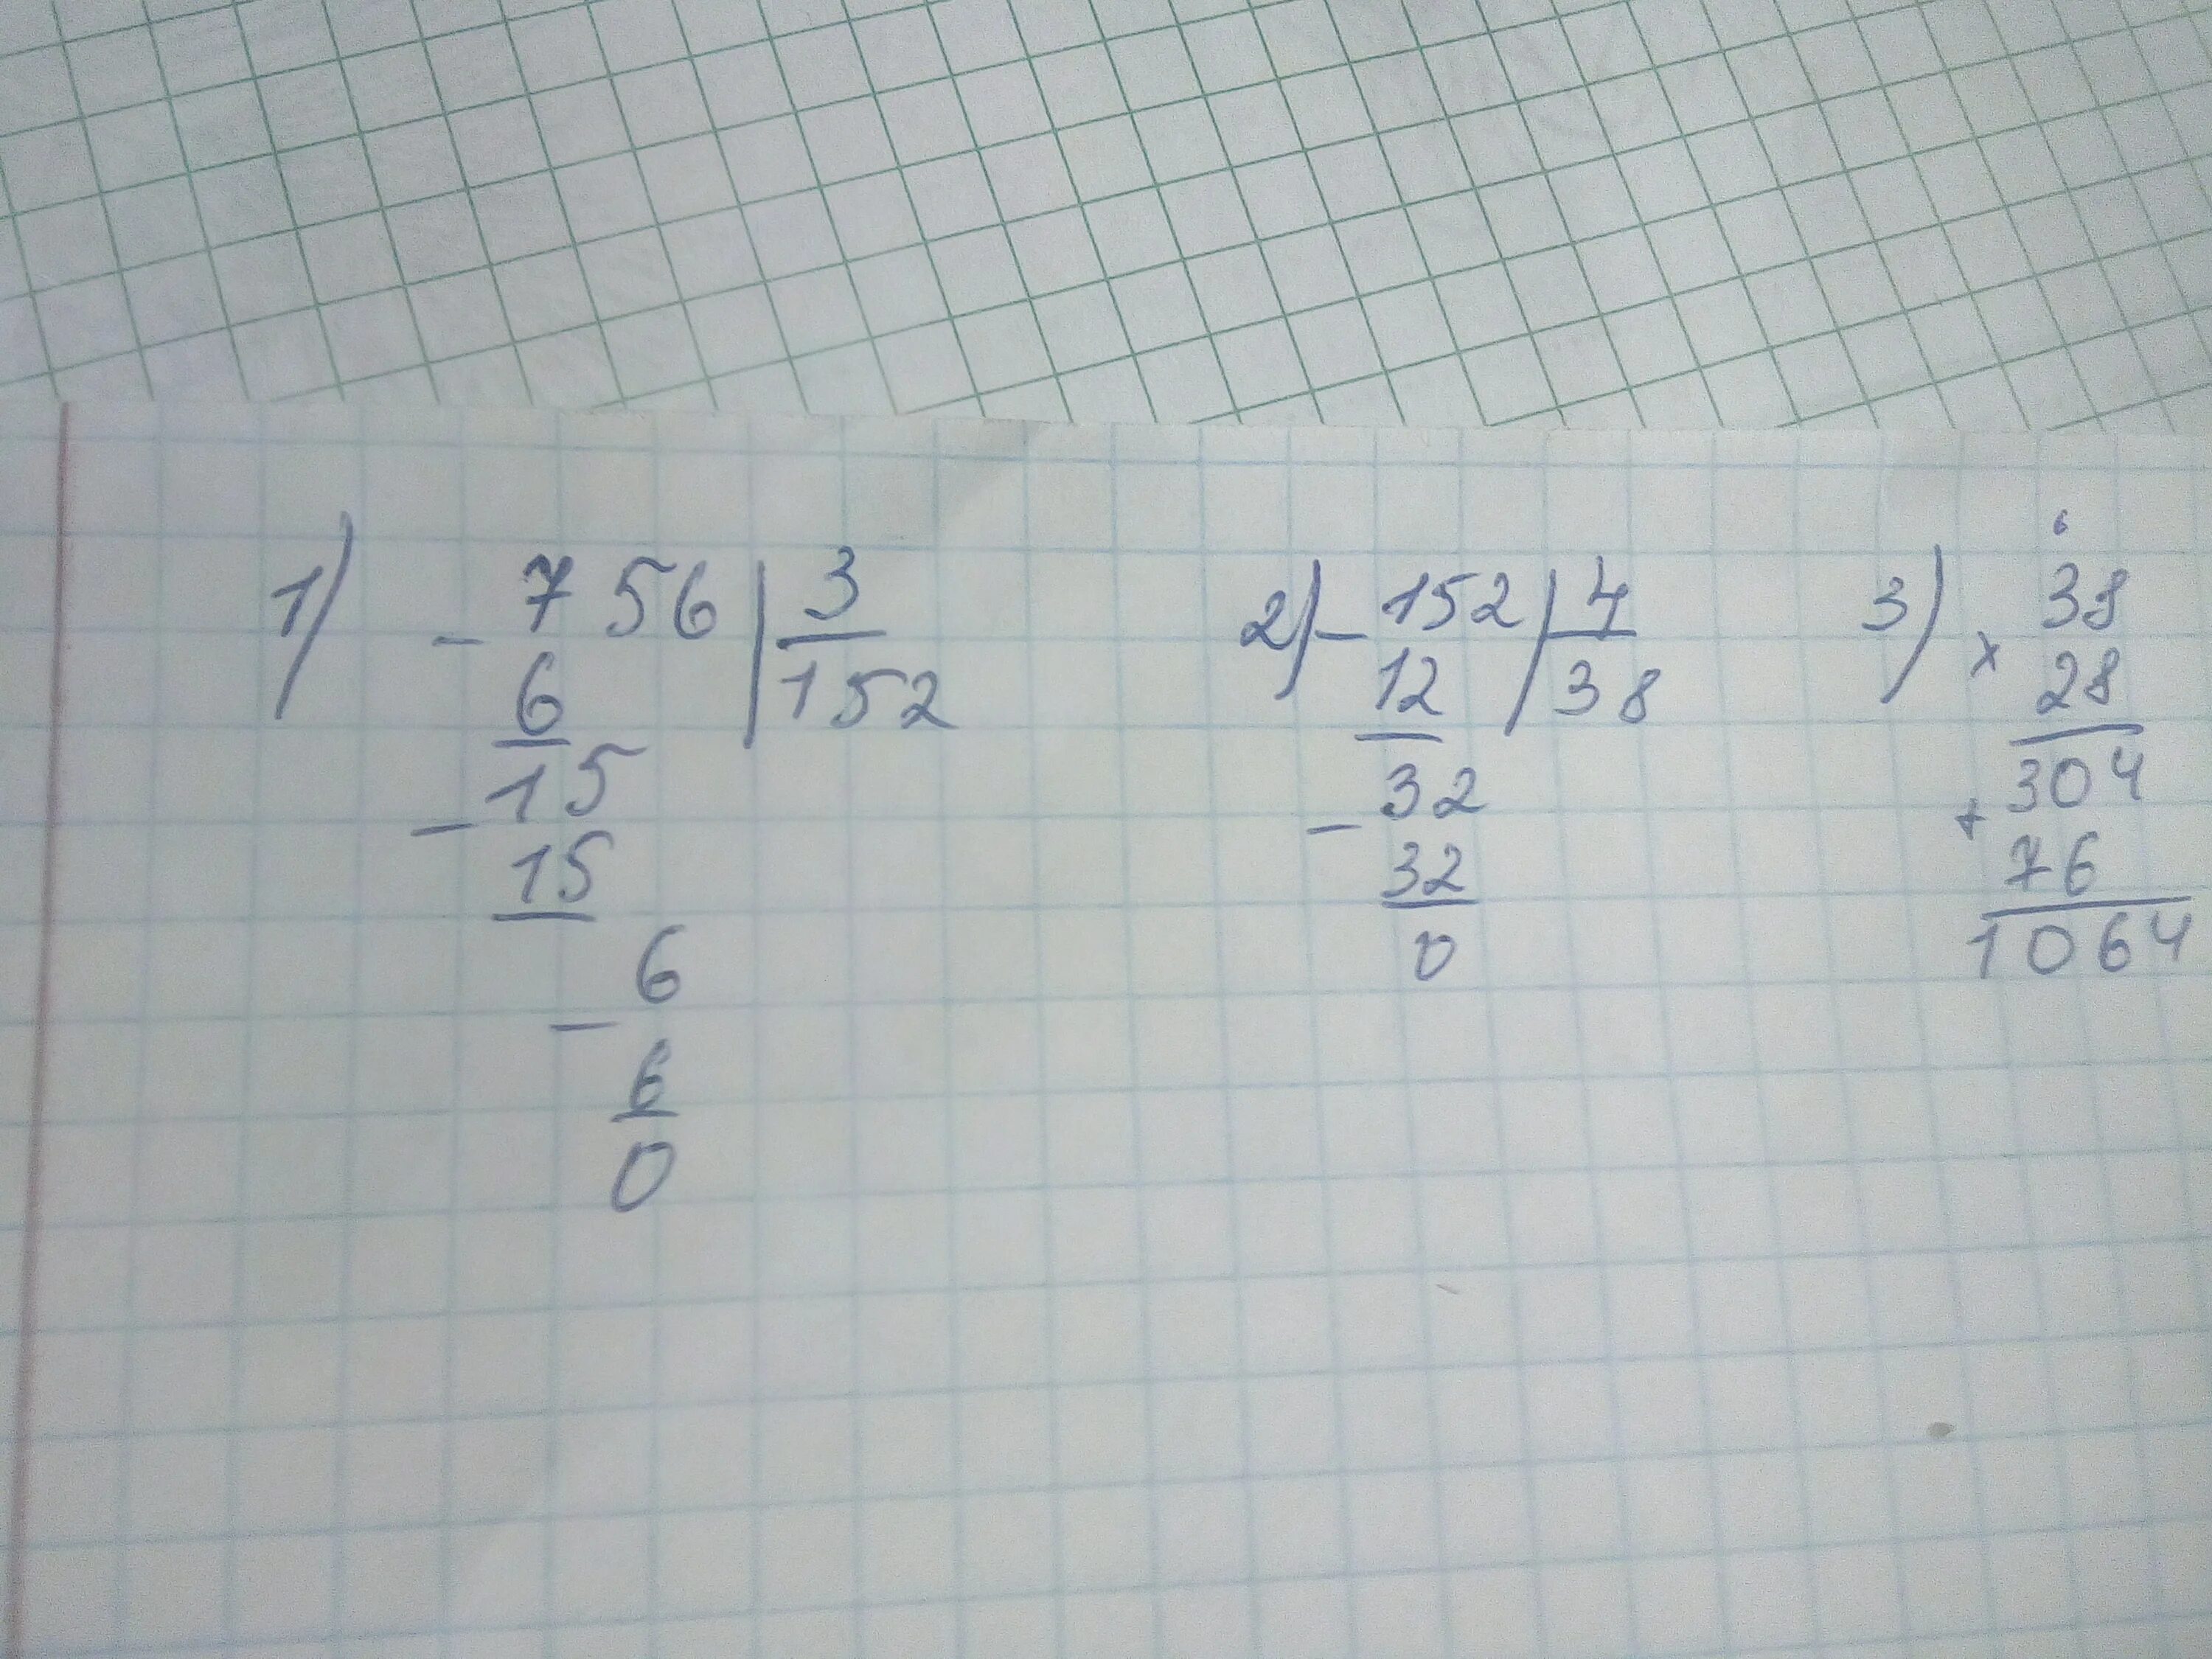 1) - 756 | 3
6 | 152
- 15
15
- 6
6
0
2) - 152 | 4
12 | 38
- 32
32
0
6
3) x 38
28
+ 304
76
1064